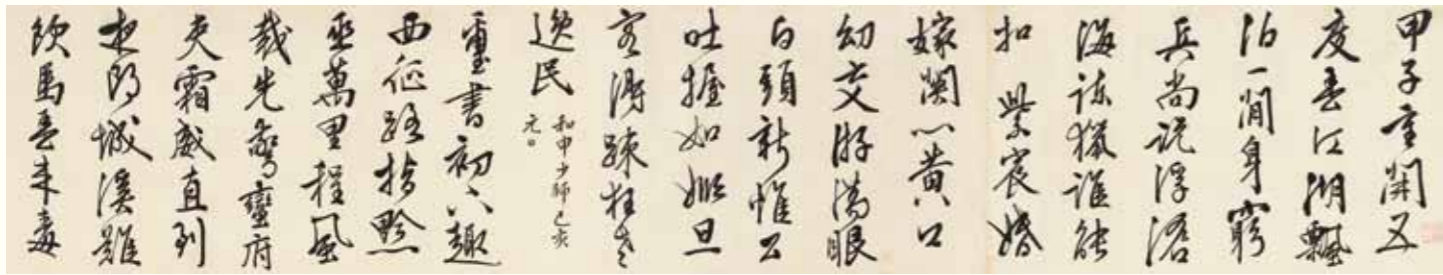 甲子重開五
度春江湖飄
泊一閒身窮
兵尚説浮滄
海諫獵誰能
扣紫宸婚
嫁関心黄口
幼交游滿眼
白頭新惟公
吐握如姬旦
容得踈狂老
逸民
和申少師己亥
元日
璽書初下趣
西征路指黔
巫萬里程風
裁先驚蠻府
吏霜威直到
夜郎城溪難
飲馬春來毒